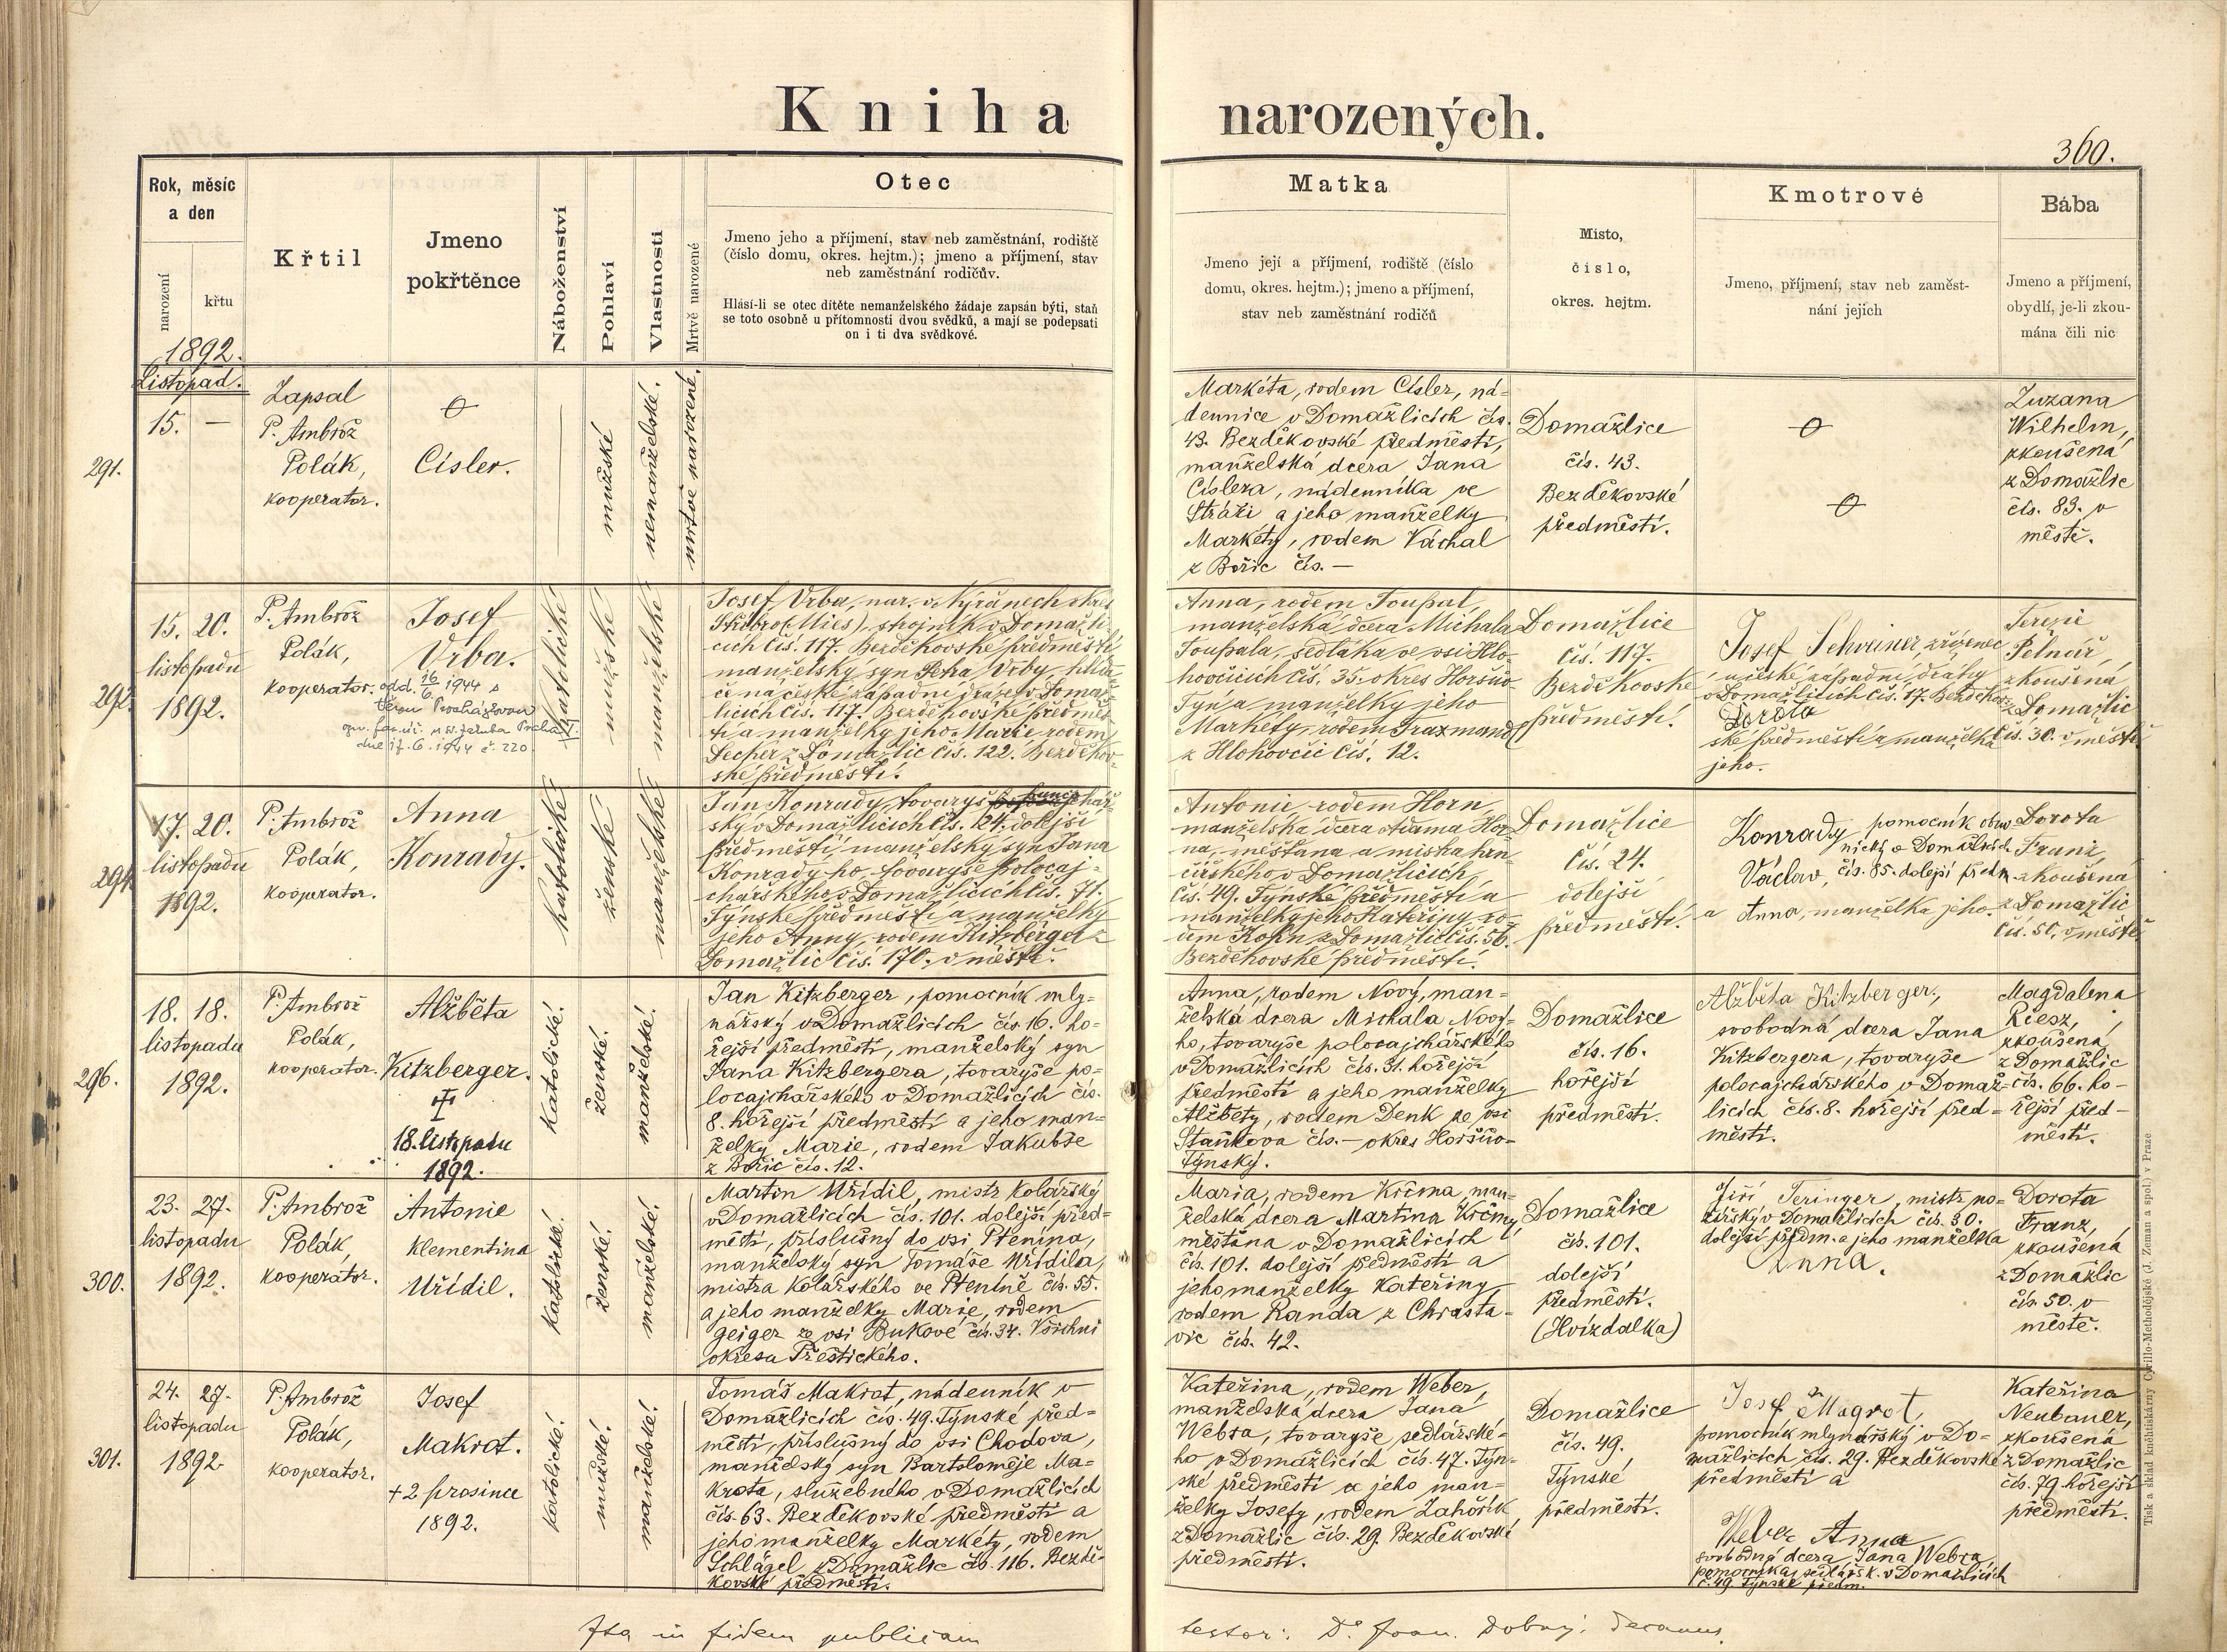 Kniha narozených.
360.
Rok, měsíc
a den
narození
křtu
1892.
Křtil
Jmeno
pokřtěnce
Náboženství
Pohlaví
Vlastnosti
Mrtvě narozené
Otec
Jmeno jeho a příjmení, stav neb zaměstnání, rodiště
(číslo domu, okres. hejtm.); jmeno a příjmení, stav
neb zaměstnání rodičův.
Hlásí-li se otec dítěte nemanželského žádaje zapsán býti, staň
se toto osobně u přítomnosti dvou svědků, a mají se podepsati
on i ti dva svědkové.
Matka
Jmeno její a příjmení, rodiště (číslo
domu, okres. hejtm.); jmeno a příjmení,
stav neb zaměstnání rodičů
Místo,
číslo,
okres. hejtm.
Kmotrové
Jmeno, příjmení, stav neb zaměst-
nání jejich
Bába
Jmeno a příjmení,
obydlí, je-li zkou-
mána čili nic
Listopad.
291.
15. —
Zapsal
P. Ambrož
Polák,
kooperator.
Císler.
mužské
nemanželské.
mrtvě narozené.
Markéta, rodem Císler, ná-
dennice v Domažlicích čís.
43. Bezděkovské předměstí,
manželská dcera Jana
Císlera, nádenníka ve
Stráži a jeho manželky
Markéty, rodem Váchal
z Bořic čís. —
Domažlice
čís. 43.
Bezděkovské
předměstí.
Zuzana
Wilhelm,
zkoušená
z Domažlic
čís. 83. v
městě.
292.
15. 20.
listopadu
1892.
P. Ambrož
Polák,
kooperator.
Josef
Vrba.
odd. 16/6. 1944 s
dne 17. 6. 1944 č. 220.
katolické
mužské
manželské
Josef Vrba, nar. v Nýřanech okres
Stříbro (Mies), strojník v Domažli-
cích čís. 117. Bezděkovské předměstí,
manželský syn Petra Vrby, hlída-
če na české západní dráze v Domaž-
licích čís. 117. Bezděkovské předměs-
tí a manželky jeho Marie rodem
z Domažlic čís. 122. Bezděkov-
ské předměstí.
Anna, rodem Toupal,
manželská dcera Michala
Toupala, sedláka ve vsi Hlo-
hovčicích čís. 35. okres Horšův
Týn a manželky jeho
Markéty, rodem
z Hlohovčic čís. 12.
Domažlice
čís. 117.
Bezděkovské
předměstí.
Josef Schreiner zřízenec
u české západní dráhy
v Domažlicích čís. 17. Bezděkov-
Dorota
ské předměstí a manželka
jeho.
Terezie
zkoušená
z Domažlic
čís. 30. v městě
294.
17. 20.
listopadu
1892.
P. Ambrož
Polák,
kooperator.
Anna
Konrady.
katolické
ženské
manželské
Jan Konrady, tovaryš
ský v Domažlicích čís. 24. dolejší
předměstí, manželský syn Jana
Konradyho, tovaryše polocaj-
chářského v Domažlicích čís. 71.
Týnské předměstí a manželky
jeho Anny, rodem Kitzberger z
Domažlic čís. 170. v městě.
Antonie rodem Horn,
manželská dcera Adama Hor-
na, měšťana a mistra hrn-
čířského v Domažlicích,
čís. 49. Týnské předměstí a
manželky jeho Kateřiny, ro-
dem Kohn z Domažlic čís. 56.
Bezděkovské předměstí.
Domažlice
čís. 24.
dolejší
předměstí.
Konrady pomocník obuv-
nický v Domažlicích
Václav, čís. 85. dolejší předm.
a Anna, manželka jeho.
Dorota
Franz,
zkoušená
z Domažlic
čís. 50. v městě
296.
18. 18.
listopadu
1892.
P. Ambrož
Polák,
kooperator.
Alžběta
Kitzberger.
18. listopadu
1892.
Katolické.
ženské.
manželské.
Jan Kitzberger, pomocník mly-
nářský v Domažlicích čís. 16. ho-
řejší předměstí, manželský syn
Jana Kitzbergera, tovaryše po-
locajchářského v Domažlicích čís.
8. hořejší předměstí a jeho man-
želky Marie, rodem Jakubše
z Bořic čís. 12.
Anna, rodem Nový, man-
želská dcera Michala Nové-
ho, tovaryše polocajchářského
v Domažlicích čís. 31. hořejší
předměstí a jeho manželky
Alžběty, rodem Denk ze vsi
Staňkova čís. — okres Horšův-
Týnský.
Domažlice
čís. 16.
hořejší
předměstí.
Alžběta Kitzberger,
svobodná dcera Jana
Kitzbergera, tovaryše
polocajchářského v Domaž-
licích čís. 8. hořejší před-
městí.
Magdalena
Riesz,
zkoušená
z Domažlic
čís. 66. ho-
řejší před-
městí.
300.
23. 27.
listopadu
1892.
P. Ambrož
Polák,
kooperátor.
Antonie
Klementina
Uřídil.
Katolické.
ženské.
manželské.
Martin Uřídil, mistr kolářský
v Domažlicích čís. 101. dolejší před-
městí, příslušný do vsi Ptenína,
manželský syn Tomáše Uřídila,
mistra kolářského ve Pteníně čís. 55.
a jeho manželky Marie, rodem
Geiger ze vsi Bukové čís. 34. Všichni
okresu Přeštického.
Maria, rodem Krčma, man-
želská dcera Martina Krčmy,
měšťana v Domažlicích
čís. 101. dolejší předměstí a
jeho manželky Kateřiny,
rodem Randa z Chrasta-
vic čís. 42.
Domažlice
čís. 101.
dolejší
předměstí.
(Hvízdalka)
Jiří Teringer, mistr no-
žířský v Domažlicích čís. 30.
dolejší předm. a jeho manželka
Anna.
Dorota
Franz,
zkoušená
z Domažlic
čís. 50. v
městě.
301.
24. 27.
listopadu
1892.
P. Ambrož
Polák,
kooperator.
Josef
Makrot.
+ 2 prosince
1892.
katolické.
mužské.
manželské.
Tomáš Makrot, nádenník v
Domažlicích čís. 49. Týnské před-
městí, příslušný do vsi Chodova,
manželský syn Bartoloměje Ma-
krota, služebného v Domažlicích
čís. 63. Bezděkovské předměstí a
jeho manželky Markéty, rodem
Schlögel z Domažlic čís. 116. Bezdě-
kovské předměstí.
Kateřina, rodem Weber,
manželská dcera Jana
Webra, tovaryše sedlářské-
ho v Domažlicích čís. 47. Týn-
ské předměstí a jeho man-
želky Josefy, rodem Zahořík
z Domažlic čís. 29. Bezděkovské
předměstí.
Domažlice
čís. 49.
Týnské
předměstí.
Josef Magrot,
pomocník mlynářský v Do-
mažlicích čís. 29. Bezděkovské
předměstí a
Weber Anna
svobodná dcera Jana Webra
pomocníka sedlářsk. v Domažlicích
č. 49 Týnské předm.
Kateřina
Neubauer,
zkoušená
z Domažlic
čís. 79. hořejší
předměstí.
Ita in fidem publicam
testor: Dr. Joan. Dobrý: Decanus
Tisk a sklad knihtiskárny Cyrillo-Methodějské (J. Zeman a spol.) v Praze